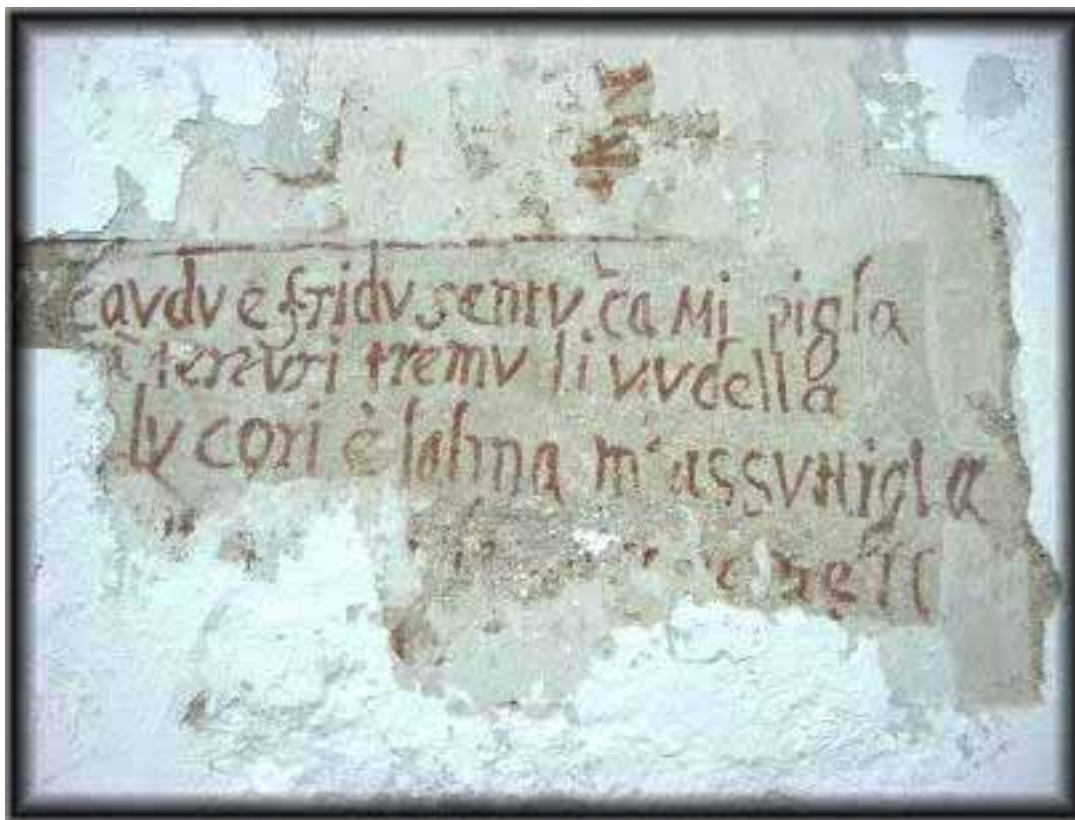 cavdv e fridv sentv ca Mi pigla
terzvri tremv li vvdella
lv cori è lalma m'assvttigla